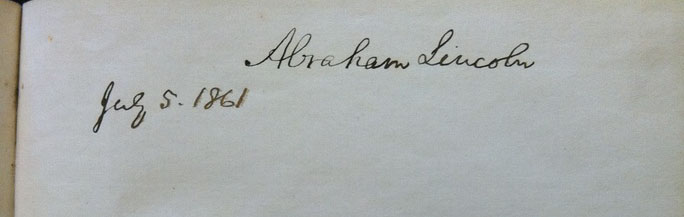 Abraham Lincoln
July 5. 1861